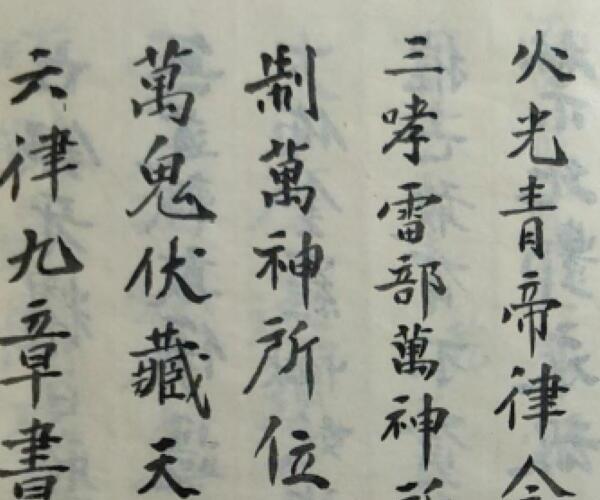 火光青帝律令
三哮雷部萬神
制萬神所位
萬鬼伏藏天
六律九章書